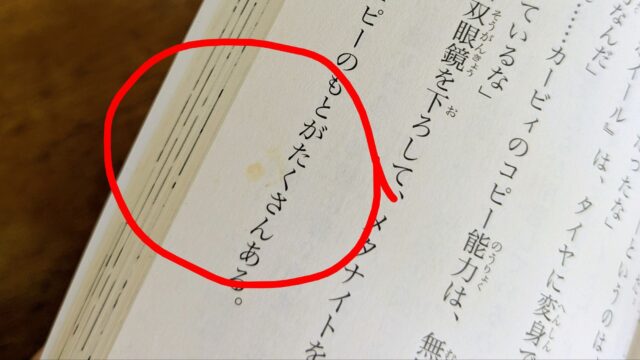 ーというのは
イール』は、タイヤに変身で
なんだ」
……カービィのコピー能力は、無
ているな」
双眼鏡を下ろして、メタナイトを
ピーのもとがたくさんある。